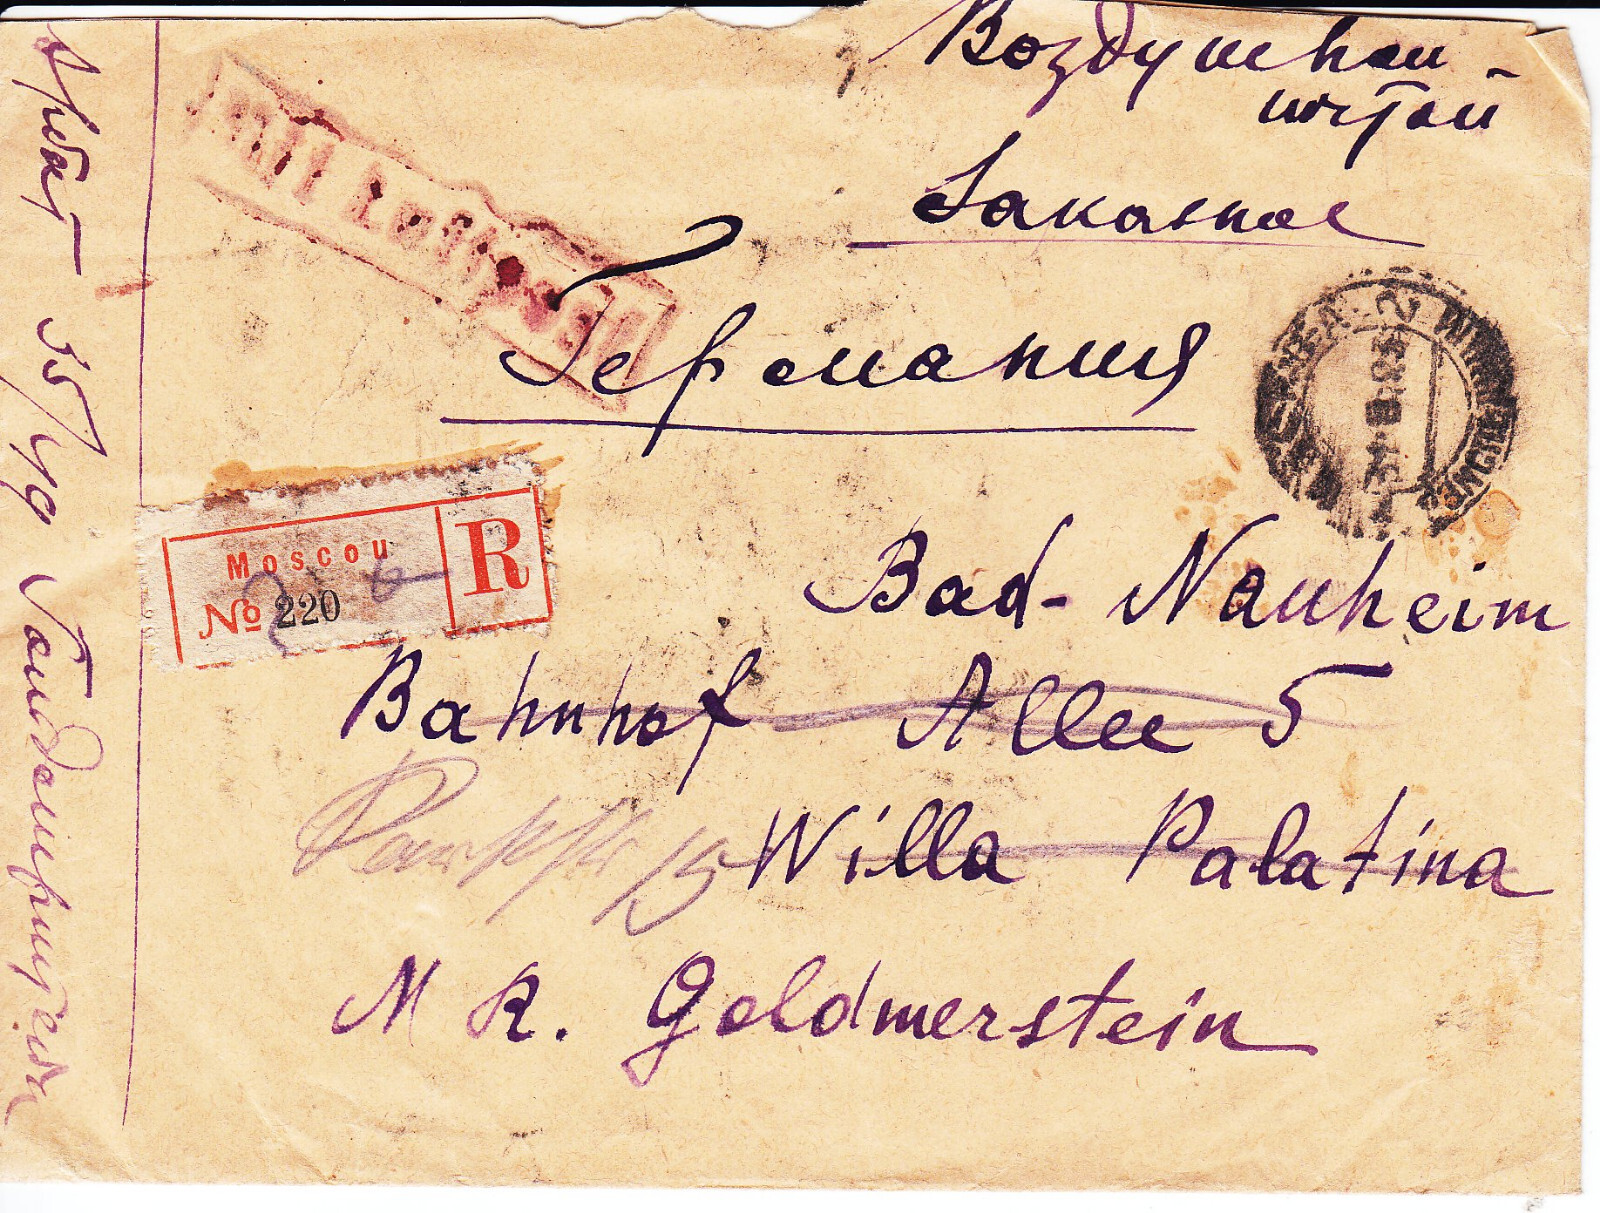 Воздушной
почтой
Заказное
mit Luftpost
Германия
Moscou
№ 220
R
Bad-Nauheim
Bahnhof Allee 5
Parkstr 15
Willa Palatina
M R. Goldmerstein
Арбат — 35/40